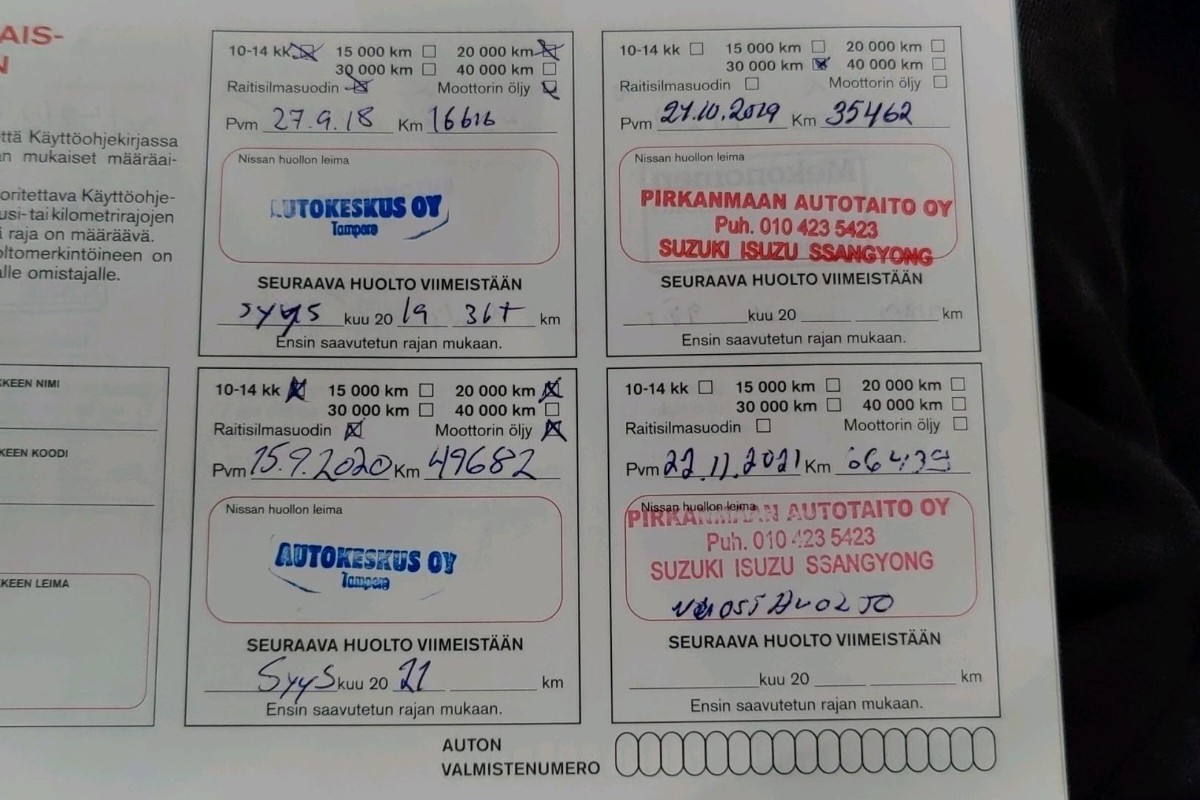 AIS-
N
ttä Käyttöohjekirjassa
n mukaiset määräai-
oritettava Käyttöohje-
usi-tai kilometrirajojen
raja on määräävä.
oltomerkintöineen on
alle omistajalle.
KKEEN NIMI
KEEN KOODI
KKEEN LEIMA
10-14 kk ☒ 15 000 km ☐ 20 000 km ☒
30 000 km ☐ 40 000 km ☐
Raitisilmasuodin ☒ Moottorin öljy ☒
Pvm 27.9.18 Km 16616
Nissan huollon leima
AUTOKESKUS OY
Tampere
SEURAAVA HUOLTO VIIMEISTÄÄN
syys kuu 20 19 36t km
Ensin saavutetun rajan mukaan.
10-14 kk ☐ 15 000 km ☐ 20 000 km ☐
30 000 km ☒ 40 000 km ☐
Raitisilmasuodin ☐ Moottorin öljy ☐
Pvm 21.10.2019 Km 35462
Nissan huollon leima
PIRKANMAAN AUTOTAITO OY
Puh. 010 423 5423
SUZUKI ISUZU SSANGYONG
SEURAAVA HUOLTO VIIMEISTÄÄN
kuu 20 km
Ensin saavutetun rajan mukaan.
10-14 kk ☒ 15 000 km ☐ 20 000 km ☒
30 000 km ☐ 40 000 km ☐
Raitisilmasuodin ☒ Moottorin öljy ☒
Pvm 15.9.2020 Km 49682
Nissan huollon leima
AUTOKESKUS OY
Tampere
SEURAAVA HUOLTO VIIMEISTÄÄN
Syys kuu 20 21 km
Ensin saavutetun rajan mukaan.
10-14 kk ☐ 15 000 km ☐ 20 000 km ☐
30 000 km ☐ 40 000 km ☐
Raitisilmasuodin ☐ Moottorin öljy ☐
Pvm 22.11.2021 Km 66439
Nissan huollon leima
PIRKANMAAN AUTOTAITO OY
Puh. 010 423 5423
SUZUKI ISUZU SSANGYONG
VUOSIHUOLTO
SEURAAVA HUOLTO VIIMEISTÄÄN
kuu 20 km
Ensin saavutetun rajan mukaan.
AUTON
VALMISTENUMERO